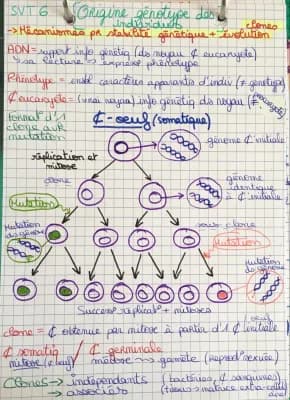 SVT 6 Origine génotype des individus
clones
→ Mécanismes pr stabilité génétique + évolution
ADN = support info génétiq (ds noyau ¢ eucaryote)
↳ sa lecture → expression phénotype
Phénotype = ensbl caractères apparents d'indiv (≠ génotype)
¢ eucaryote = (vrai noyau) info génétiq ds noyau (≠ procaryote)
format° d'1 clone avec mutation
¢-oeuf (somatique)
génome ¢ initiale
réplication et mitose
clone
génome identique à ¢ initiale
Mutation
Mutation ds génome
sous-clone
Mutation
Mutation ds génome
Success° réplicat° + mitoses
clone = ¢ obtenue par mitose à partir d'1 ¢ initiale
¢ somatiq
mitose
¢ germinale
méiose → gamète (reprod° sexuée)
Clones → indépendants (bactéries, ¢ sanguines)
→ associés (tissus → matrice extra-cell)